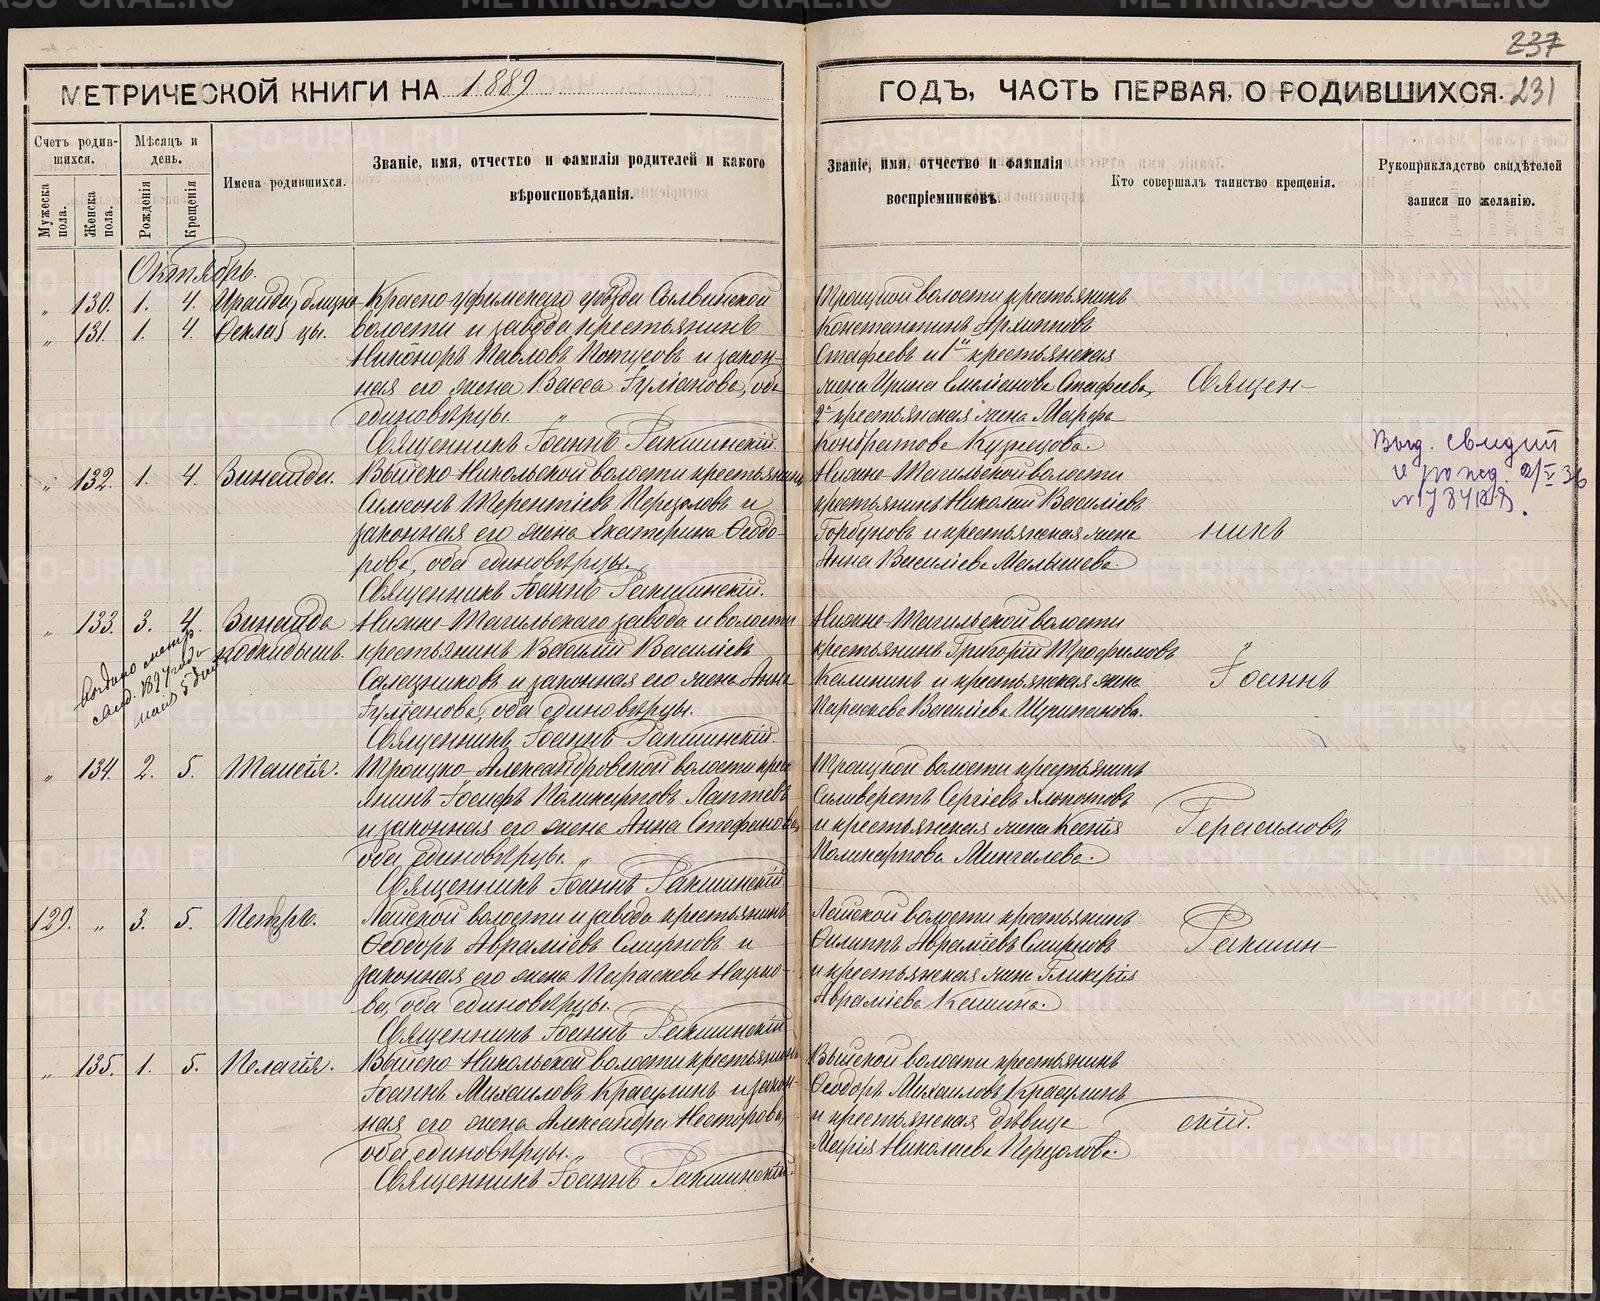 237
МЕТРИЧЕСКОЙ КНИГИ НА 1889
ГОДЪ, ЧАСТЬ ПЕРВАЯ, О РОДИВШИХСЯ. 231
Счетъ родив-
шихся.
Мужеска
пола.
Женска
пола.
Мѣсяцъ и
день.
Рожденія
Крещенія
Имена родившихся.
Званіе, имя, отчество и фамилія родителей и какого
вѣроисповѣданія.
Званіе, имя, отчество и фамилія
воспріемниковъ.
Кто совершалъ таинство крещенія.
Рукоприкладство свидѣтелей
записи по желанію.
Октябрь.
„ 130. 1. 4. Ираида, близне- Красно-уфимскаго уѣзда Сылвинской
„ 131. 1. 4. Фекла цы. волости и завода крестьянинъ
Никоноръ Павловъ и закон-
ная его жена Васса Іуліанова, оба
единовѣрцы.
Священникъ Іоаннъ Ракшинскій.
Троицкой волости крестьянинъ
Константинъ Архиповъ
Стафеевъ и 1я крестьянская
жена Ирина Стафеева,
2я крестьянская жена Марфа
Кондратова Кузнецова.
„ 132. 1. 4. Зинаида. Выйско-Никольской волости крестьянинъ
Симеонъ Терентіевъ Перезоловъ и
законная его жена Екатерина Ѳеодо-
рова, оба единовѣрцы.
Священникъ Іоаннъ Ракшинскій.
Нижне-Тагильской волости
крестьянинъ Николай Василіевъ
Горбуновъ и крестьянская жена
Анна Василіева Малышева.
Выд. свидит
о рожд. 2/V 36
„ 133. 3. 4. Зинаида Нижне-Тагильскаго завода и волости
подкидышъ. крестьянинъ Василій Василіевъ
и законная его жена Анна
Іуліанова, оба единовѣрцы.
Священникъ Іоаннъ Ракшинскій.
Выдано метр.
свид. 1897 года
мая 5 дня
Нижне-Тагильской волости
крестьянинъ Григорій Трофимовъ
Калининъ и крестьянская жена
Параскева Василіева
„ 134. 2. 5. Таисія. Троицко-Александровской волости крест-
янинъ Іосифъ Поликарповъ Лаптевъ
и законная его жена Анна Стефанова,
оба единовѣрцы.
Священникъ Іоаннъ Ракшинскій
Троицкой волости крестьянинъ
Силиверстъ Сергіевъ Хлопотовъ
и крестьянская жена Ксенія
Поликарпова Мингалева.
129. „ 3. 5. Петръ. Лайской волости и завода крестьянинъ
Ѳеодоръ Авраміевъ Смирновъ и
законная его жена Параскева Наумо-
ва, оба единовѣрцы.
Священникъ Іоаннъ Ракшинскій
Лайской волости крестьянинъ
Филиппъ Авраміевъ Смирновъ
и крестьянская жена Гликерія
Авраміева Кашина.
„ 135. 1. 5. Пелагія. Выйско-Никольской волости крестьянинъ
Іоаннъ Михаиловъ Красулинъ и закон-
ная его жена Александра Несторова,
оба единовѣрцы.
Священникъ Іоаннъ Ракшинскій.
Выйской волости крестьянинъ
Ѳеодоръ Михаиловъ Красулинъ
и крестьянская дѣвица
Марія Николаева Перезолова.
Священ-
никъ
Іоаннъ
Герасимовъ
Ракшин-
скій.